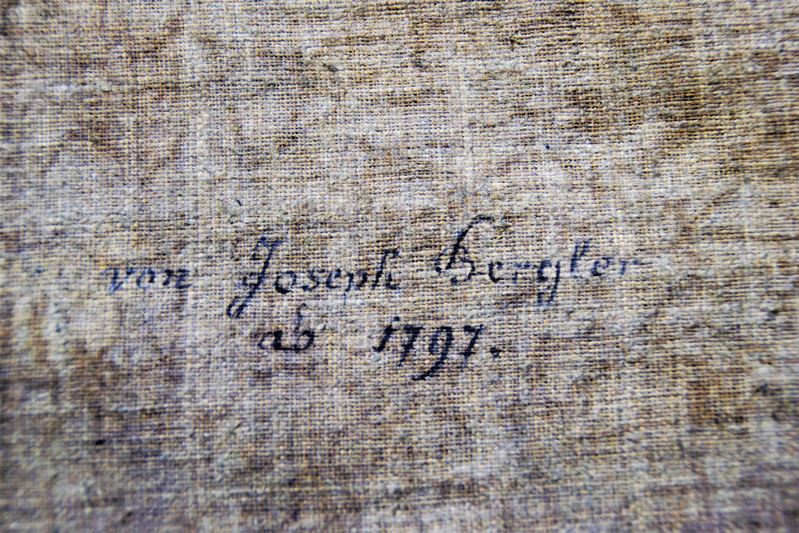 von Joseph Bergler
ab 1797.